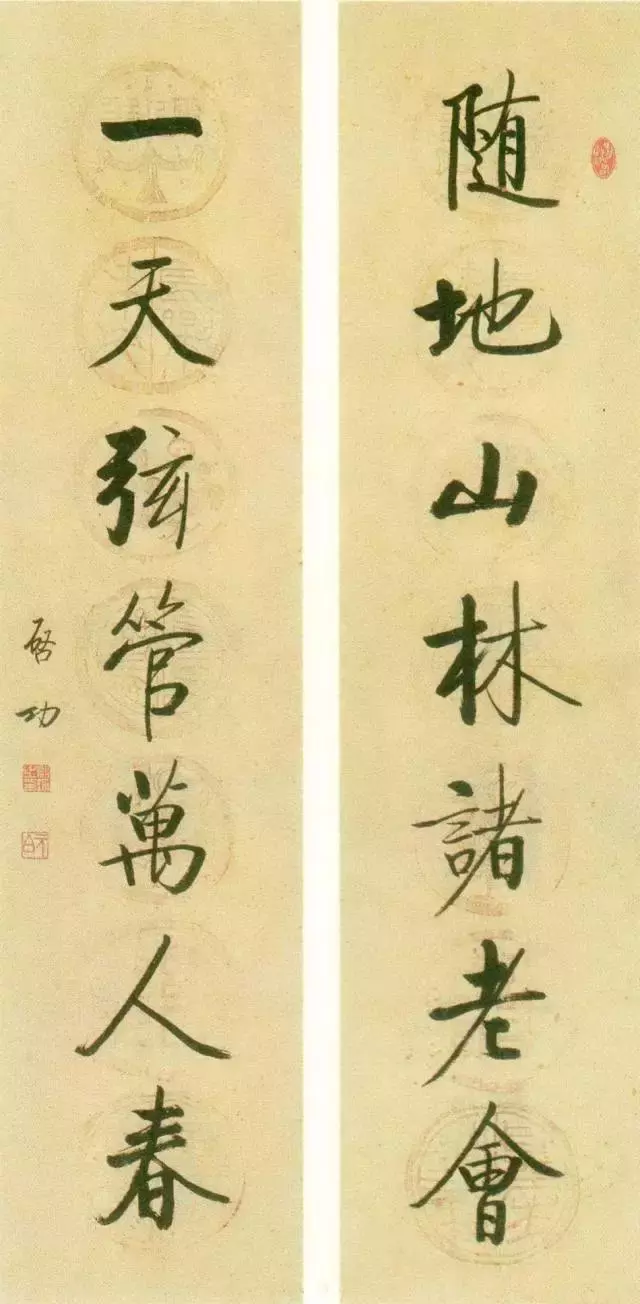 随地山林諸老會
一天弦管萬人春
启功